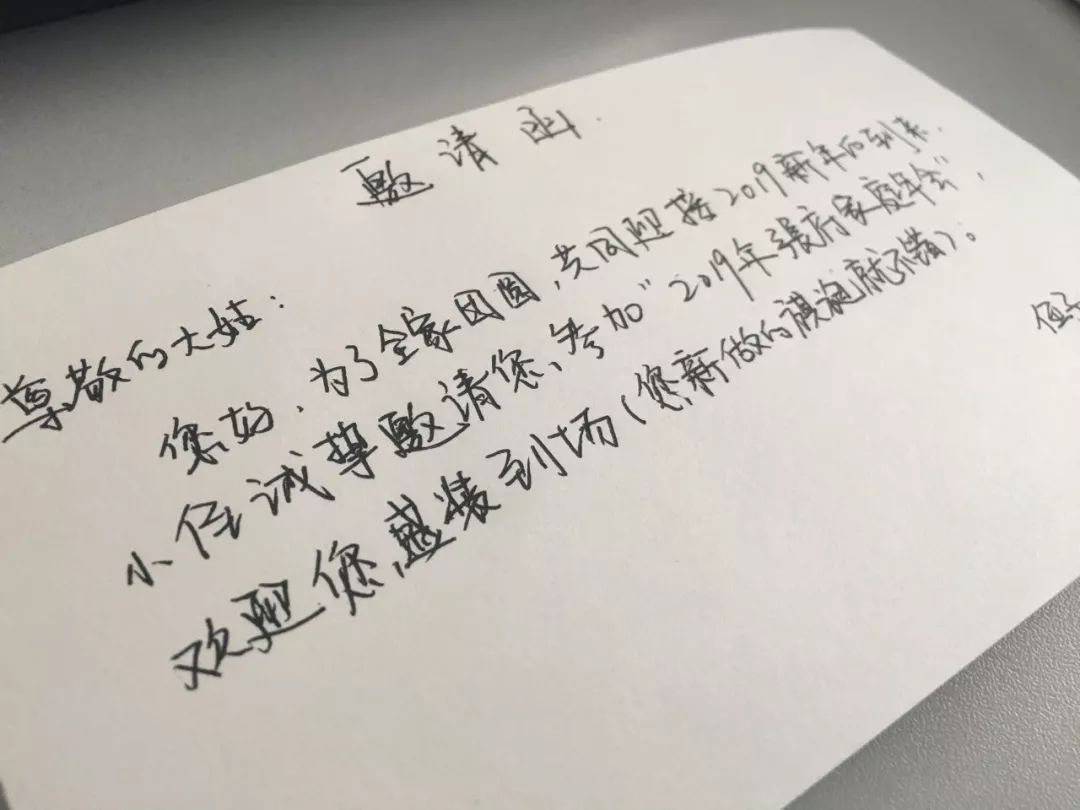 邀请函
尊敬的大姑：
您好，为了全家团圆，共同迎接2019新年的到来，
小侄诚挚邀请您，参加"2019年张府家庭年会"，
欢迎您盛装到场（您新做的旗袍就不错）。
侄子